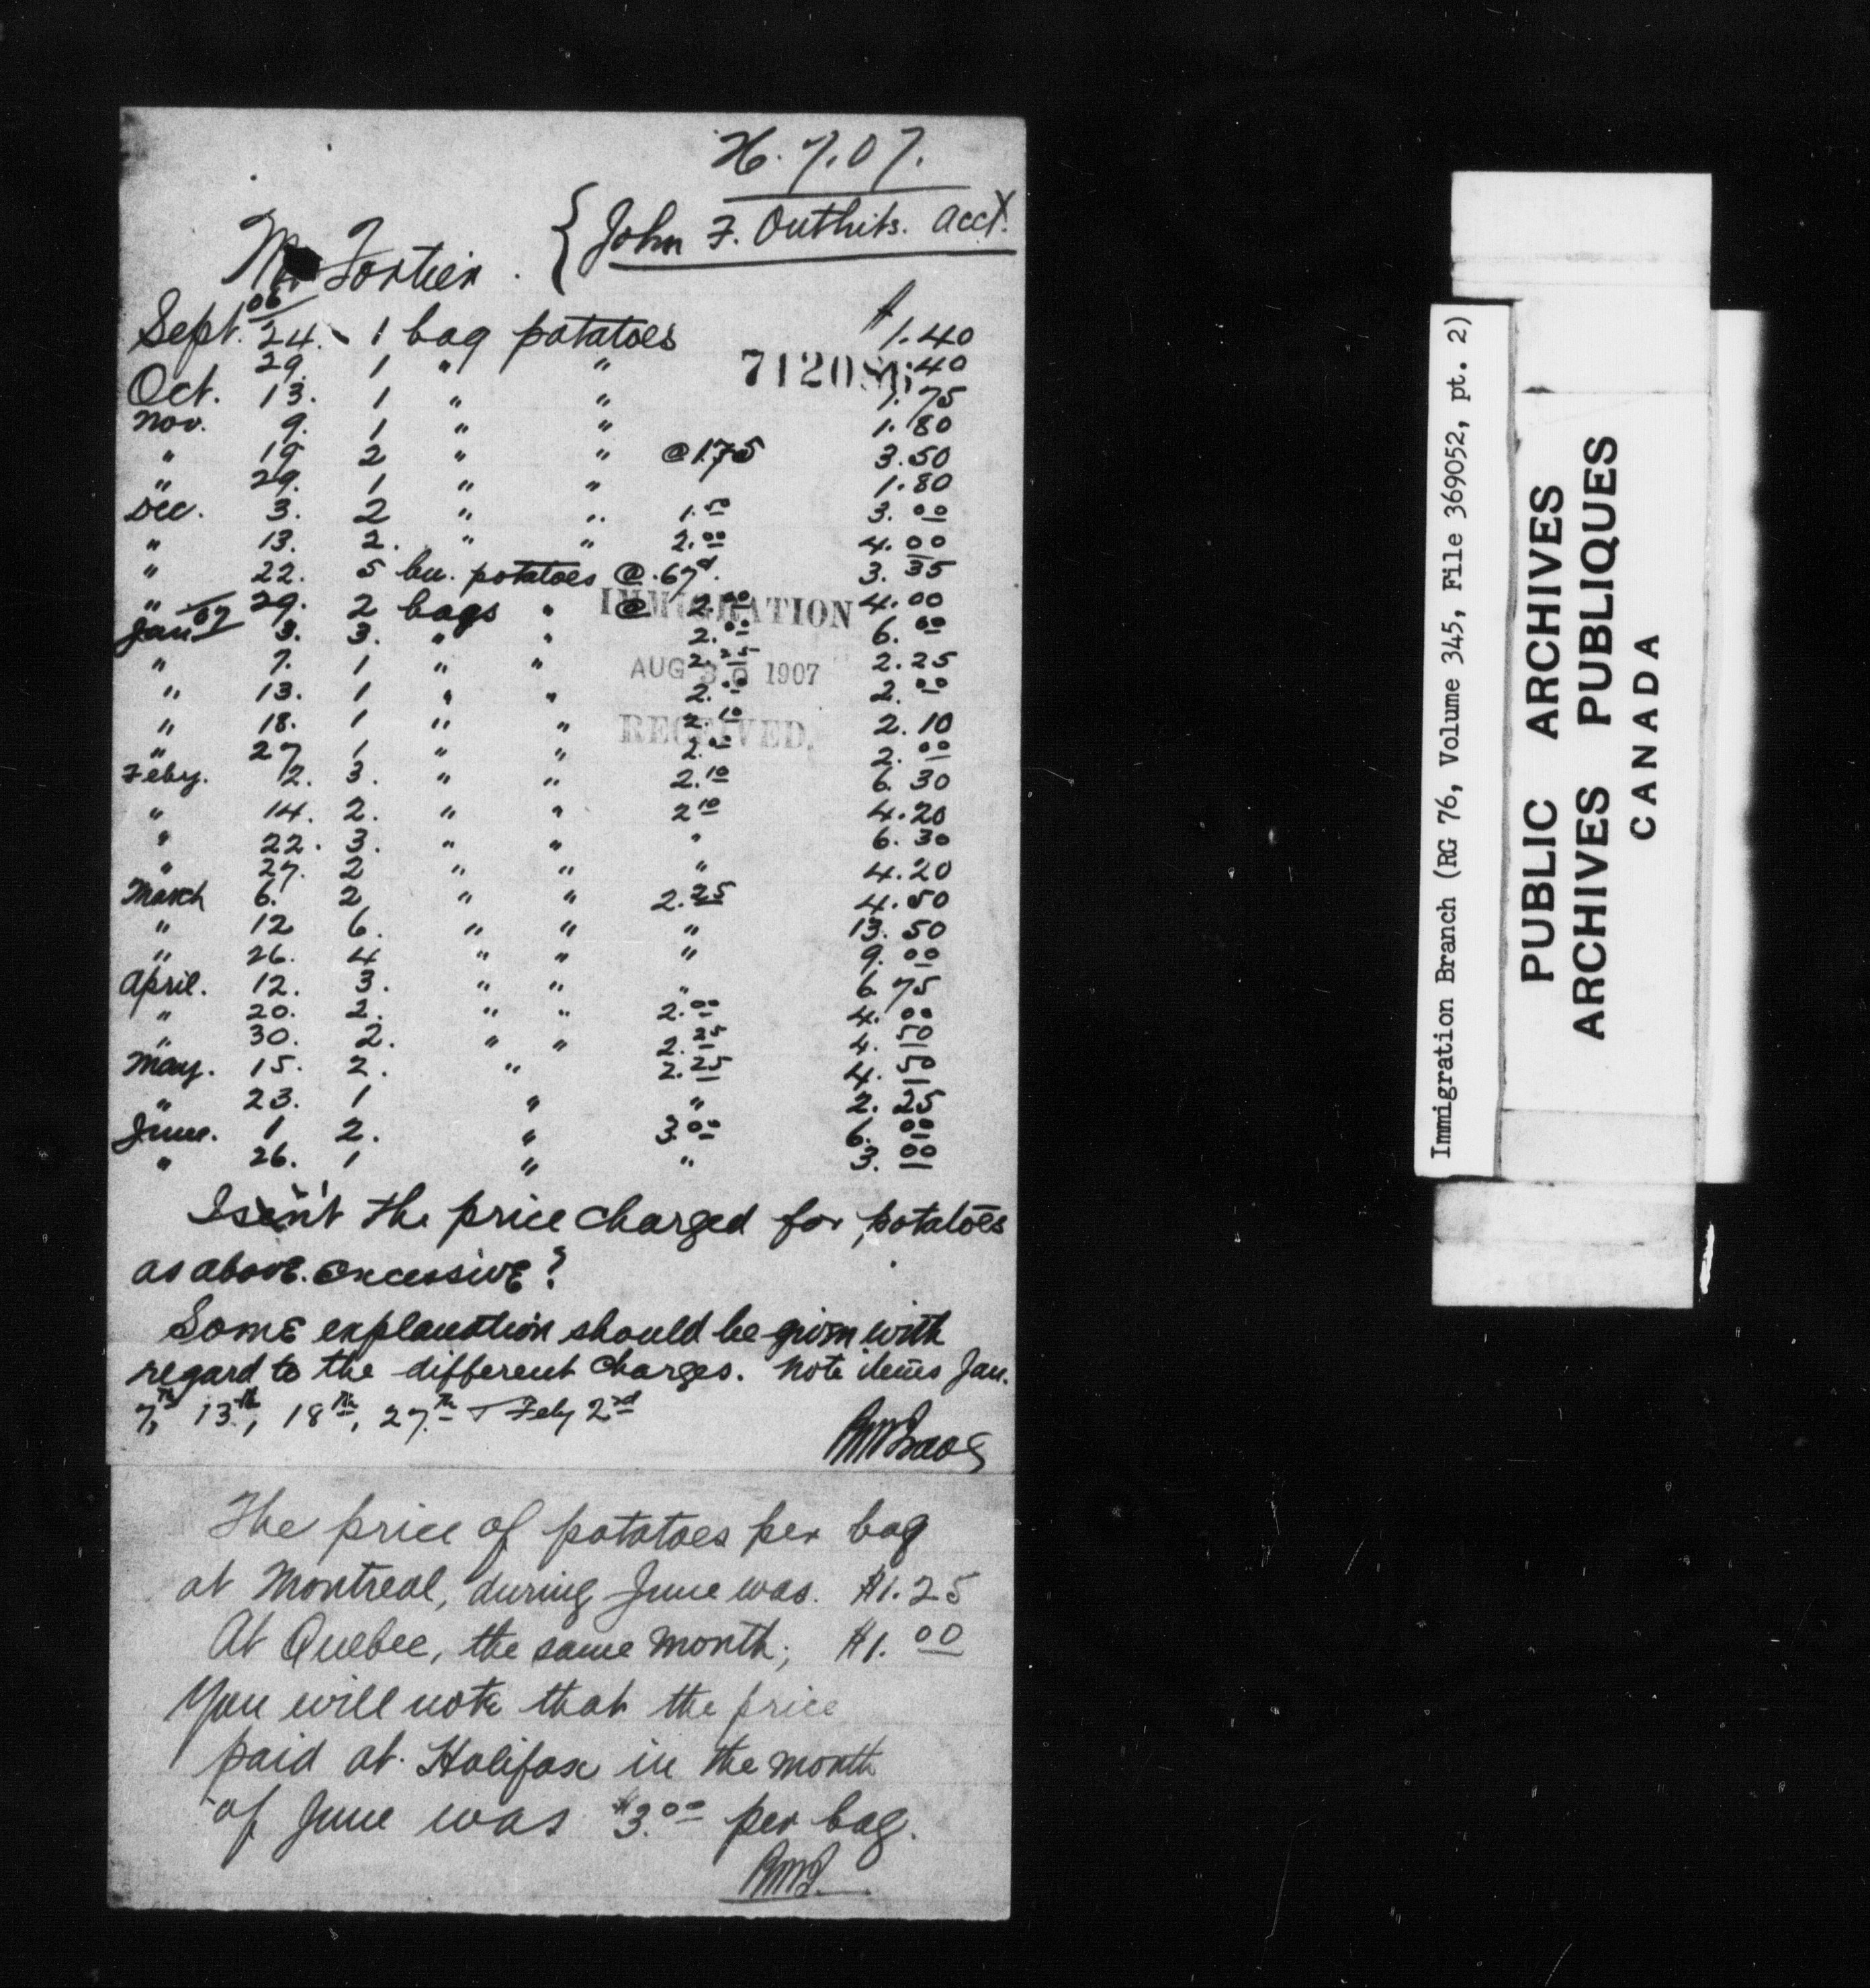 26.7.07.
Mr Fortier. { John F. Outhits. Acct.
Sept. 06 24. 1 bag potatoes $1.40
29. 1 " " 1.40
712086
Oct. 13. 1 " " 1.75
Nov. 9. 1 " " 1.80
" 19 2 " " @ 1.75 3.50
" 29. 1 " " 1.80
Dec. 3. 2 " " 1.50 3.00
" 13. 2. " " 2.00 4.00
" 22. 5 bu. potatoes @ .67 3.35
" 29. 2 bags " @ 2.00 4.00
IMMIGRATION
Jan 07 3. 3. " " 2.00 6.00
" 7. 1 " " 2.25 2.25
AUG 30 1907
" 13. 1 " " 2.00 2.00
" 18. 1 " " 2.10 2.10
RECEIVED.
" 27 1 " " 2.00 2.00
Feby. 2. 3. " " 2.10 6.30
" 14. 2. " " 2.10 4.20
" 22. 3. " " " 6.30
" 27. 2 " " " 4.20
March 6. 2 " " 2.25 4.50
" 12 6. " " " 13.50
" 26. 4 " " " 9.00
April. 12. 3. " " " 6.75
" 20. 2. " " 2.00 4.00
" 30. 2. " " 2.25 4.50
May. 15. 2. " 2.25 4.50
" 23. 1 " " 2.25
June. 1 2. " 3.00 6.00
" 26. 1 " " 3.00
Isn't the price charged for potatoes
as above excessive?
Some explanation should be given with
regard to the different charges. Note items Jan.
7th, 13th, 18th, 27th + Feby 2nd
The price of potatoes per bag
at Montreal, during June was. $1.25
At Quebec, the same month; $1.00
You will note that the price
paid at Halifax in the month
of June was $3.00 per bag.
Immigration Branch (RG 76, Volume 345, File 369052, pt. 2)
PUBLIC ARCHIVES
ARCHIVES PUBLIQUES
CANADA